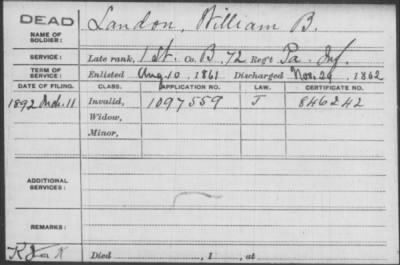 DEAD
NAME OF SOLDIER: Landon, William B.
SERVICE: Late rank, 1 St. Co. B, 72 Reg't Pa. Inf.
TERM OF SERVICE: Enlisted Aug. 10, 1861 Discharged Nov. 29, 1862
DATE OF FILING. CLASS. APPLICATION NO. LAW. CERTIFICATE NO.
1892 Mch. 11 Invalid, 1097559 J 846242
Widow,
Minor,
ADDITIONAL SERVICES:
REMARKS:
Died , 1 , at